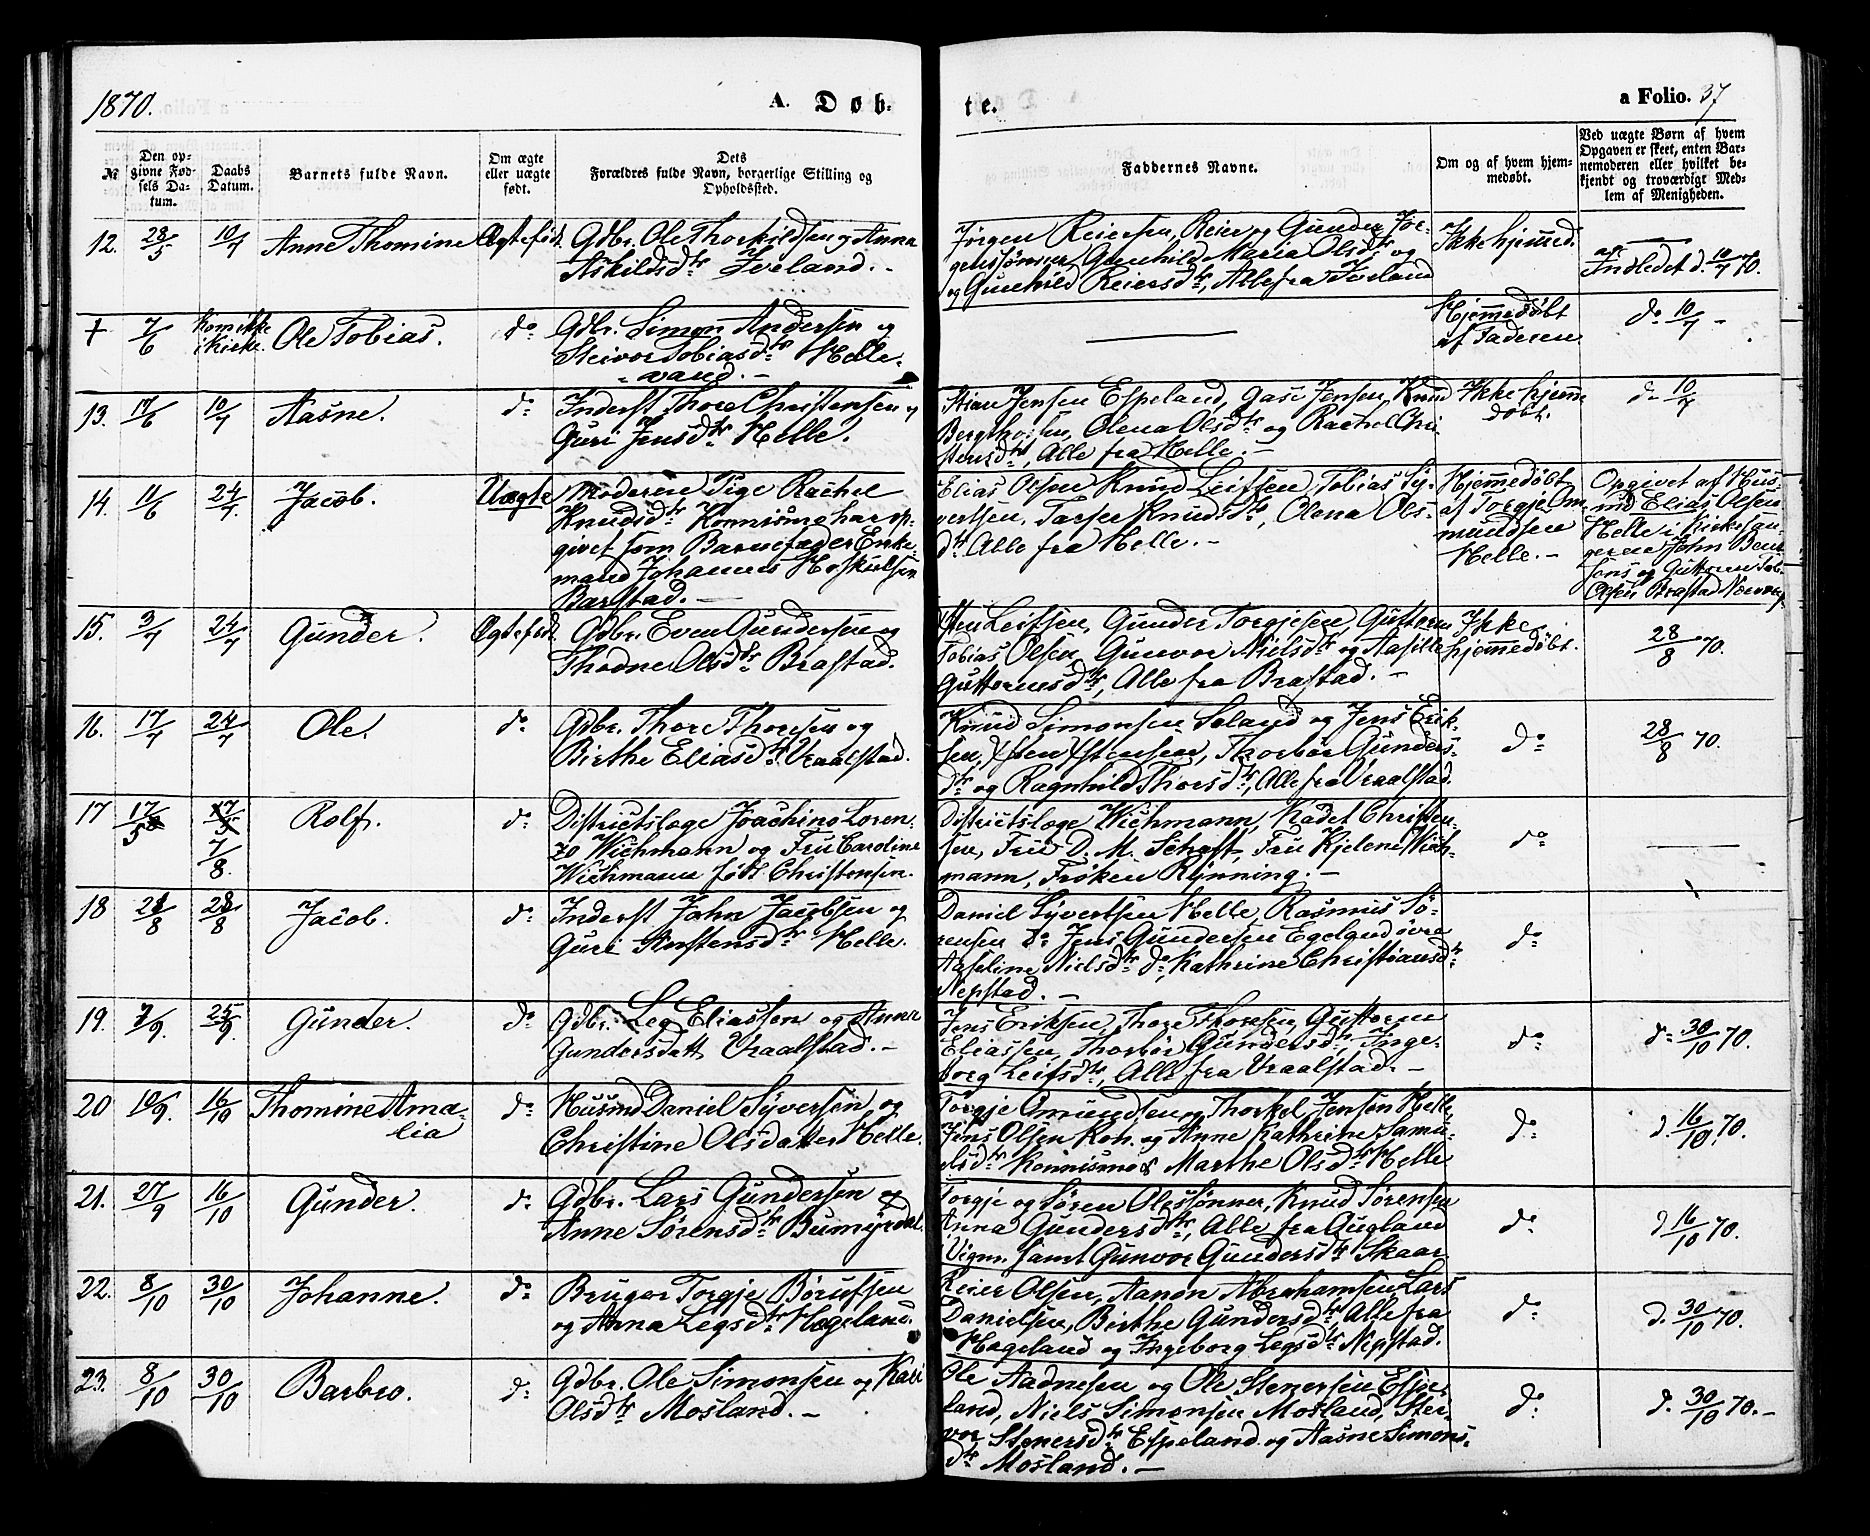 1870.
A. Døb-
te.
a Folio. 37
№
Den op-
givne Fød-
sels Da-
tum.
Daabs
Datum.
Barnets fulde Navn.
Om ægte
eller uægte
født.
Dets
Forældres fulde Navn, borgerlige Stilling og
Opholdssted.
Faddernes Navne.
Om og af hvem hjem-
medøbt.
Ved uægte Børn af hvem
Opgaven er skeet, enten Bar-
nemoderen eller hvilket be-
kjendt og troværdigt Med-
lem af Menigheden.
12. 28/5 10/7 Anne Thomine Ægtefød.
Gdbr. Ole Thorkildsen og Anna
Askildsdtr Iveland. -
Jørgen Reiersen, Reier og Gunder Jør-
genssønner, Gunhild Maria Olsdtr og
og Gunhild Reiersdtr, Alle fra Iveland
Ikke hjemmed.
Indledet d. 10/7 70.
+ 7/6 Kom ikke
i Kirke.
Ole Tobias. do
Gdbr. Simon Andersen og
Steivor Tobiasdtr Helle-
vand. -
Hjemmedøbt
af Faderen
do 10/7 -
13. 17/6 10/7 Aasne. do
Inderst Thore Christensen og
Guri Jensdtr Helle.
Stian Jensen Espeland, Jens Jensen, Knud
Bergthorsen, Olena Olsdtr og Rachel Chri-
stensdtr, Alle fra Helle. -
Ikke hjemme
døbt.
do 10/7
14. 11/6 24/7. Jacob. Uægte
Moderen Pige Rachel
Knudsdtr Konnismo har op-
givet som Barnefader Enke-
mand Johannes Hoskulsen
Barstad. -
Elias Olsen Knud Leifsen, Tobias Sy-
vertsen, Tarjer Knudsdtr, Olena Ols-
dtr Alle fra Helle. -
Hjemmedøbt
af Torgje Om-
mundsen
Helle. -
Opgivet af Hus-
md Elias Olsen
Helle i Kirkesan-
geren John Bent-
sens og Guttorm
Olsen Brastad Nærvær
15. 3/7 24/7 Gunder. Ægtefød.
Gdbr. Even Gundersen og
Thodne Olsdtr Brastad.
Leifsen, Gunder Torgjesen, Guttorm
Tobias Olsen, Gunvor Nielsdtr og Aasille
Guttormsdtr, Alle fra Brastad. -
Ikke
hjemmedøbt.
28/8 70.
16. 17/7 24/7 Ole. do
Gdbr. Thore Thoresen og
Birthe Eliasdtr Vraalstad.
Knud Simonsen Soland og Jens Erik-
sen, Sten Stensen, Thorbør Gunders-
dtr og Ragnhild Thorsdtr, Alle fra Vraalstad.
do
28/8 70.
17 17/5 17/5
7/8.
Rolf. do
Districtslæge Joachino Loren-
zo Wichmann og Fru Caroline
Wichmann født Christensen.
Districtslæge Wichmann, Kadet Christen-
sen, Fru D. M. Schaft, Fru Kjelene Wich-
mann, Frøken Rynning. -
do
18 28/8 Jacob. do
Inderst John Jacobsen og
Guri Arstensdtr Helle.
Daniel Syvertsen Helle, Rasmus Sø-
rensen do Jens Gundersen Egeland øvre
Aaseline Nielsdtr do, Kathrine Christiansdtr
Nepstad. -
do
19. 7/9. 25/9 Gunder. do
Gdbr. Leg Eliassen og Anne
Gundersdatt Vraalstad. -
Jens Eriksen, Thore Thoresen, Guttorm
Eliassen, Thorbør Gundersdtr, Inge-
borg Leifsdtr, Alle fra Vraalstad. -
do
do 30/10 70.
20 10/9. 16/10 Thomine Ama-
lia
do
Husmd Daniel Syversen og
Christine Olsdatter Helle.
Torgje Omundsen og Thorkel Jensen Helle,
Jens Olsen Kon. og Anne Kathrine Samu-
elsdtr Konnismo & Marthe Olsdtr Helle
do
d. 16/10 70.
21. 27/9 16/10 Gunder. do
Gdbr. Lars Gundersen og
Anne Sørensdtr Bumyrdal.
Torgje og Søren Olessønner, Knud Sørensen
Anna Gundersdtr, Alle fra Augland
i Vigm. samt Gunvor Gundersdtr Skaar.
do
d. 16/10 70.
22. 8/10 30/10 Johanne. do
Bruger Torgje Børufsen
og Anna Legsdtr Hægeland.
Reier Olsen, Aanon Abrahamsen Lars
Danielsen, Birthe Gundersdtr, Alle fra
Hægeland og Ingeborg Legsdtr Nepstad.
do
d. 30/10 70.
23. 8/10 30/10 Barbro. do
Gdbr. Ole Simonsen og Kari
Olsdtr Mosland. -
Ole Aadnesen og Ole Stenersen Espe-
land, Niels Simonsen Mosland, Ster-
vor Stenersdtr Espeland og Aasne Simons-
dtr Mosland. -
do
d. 30/10 70. -